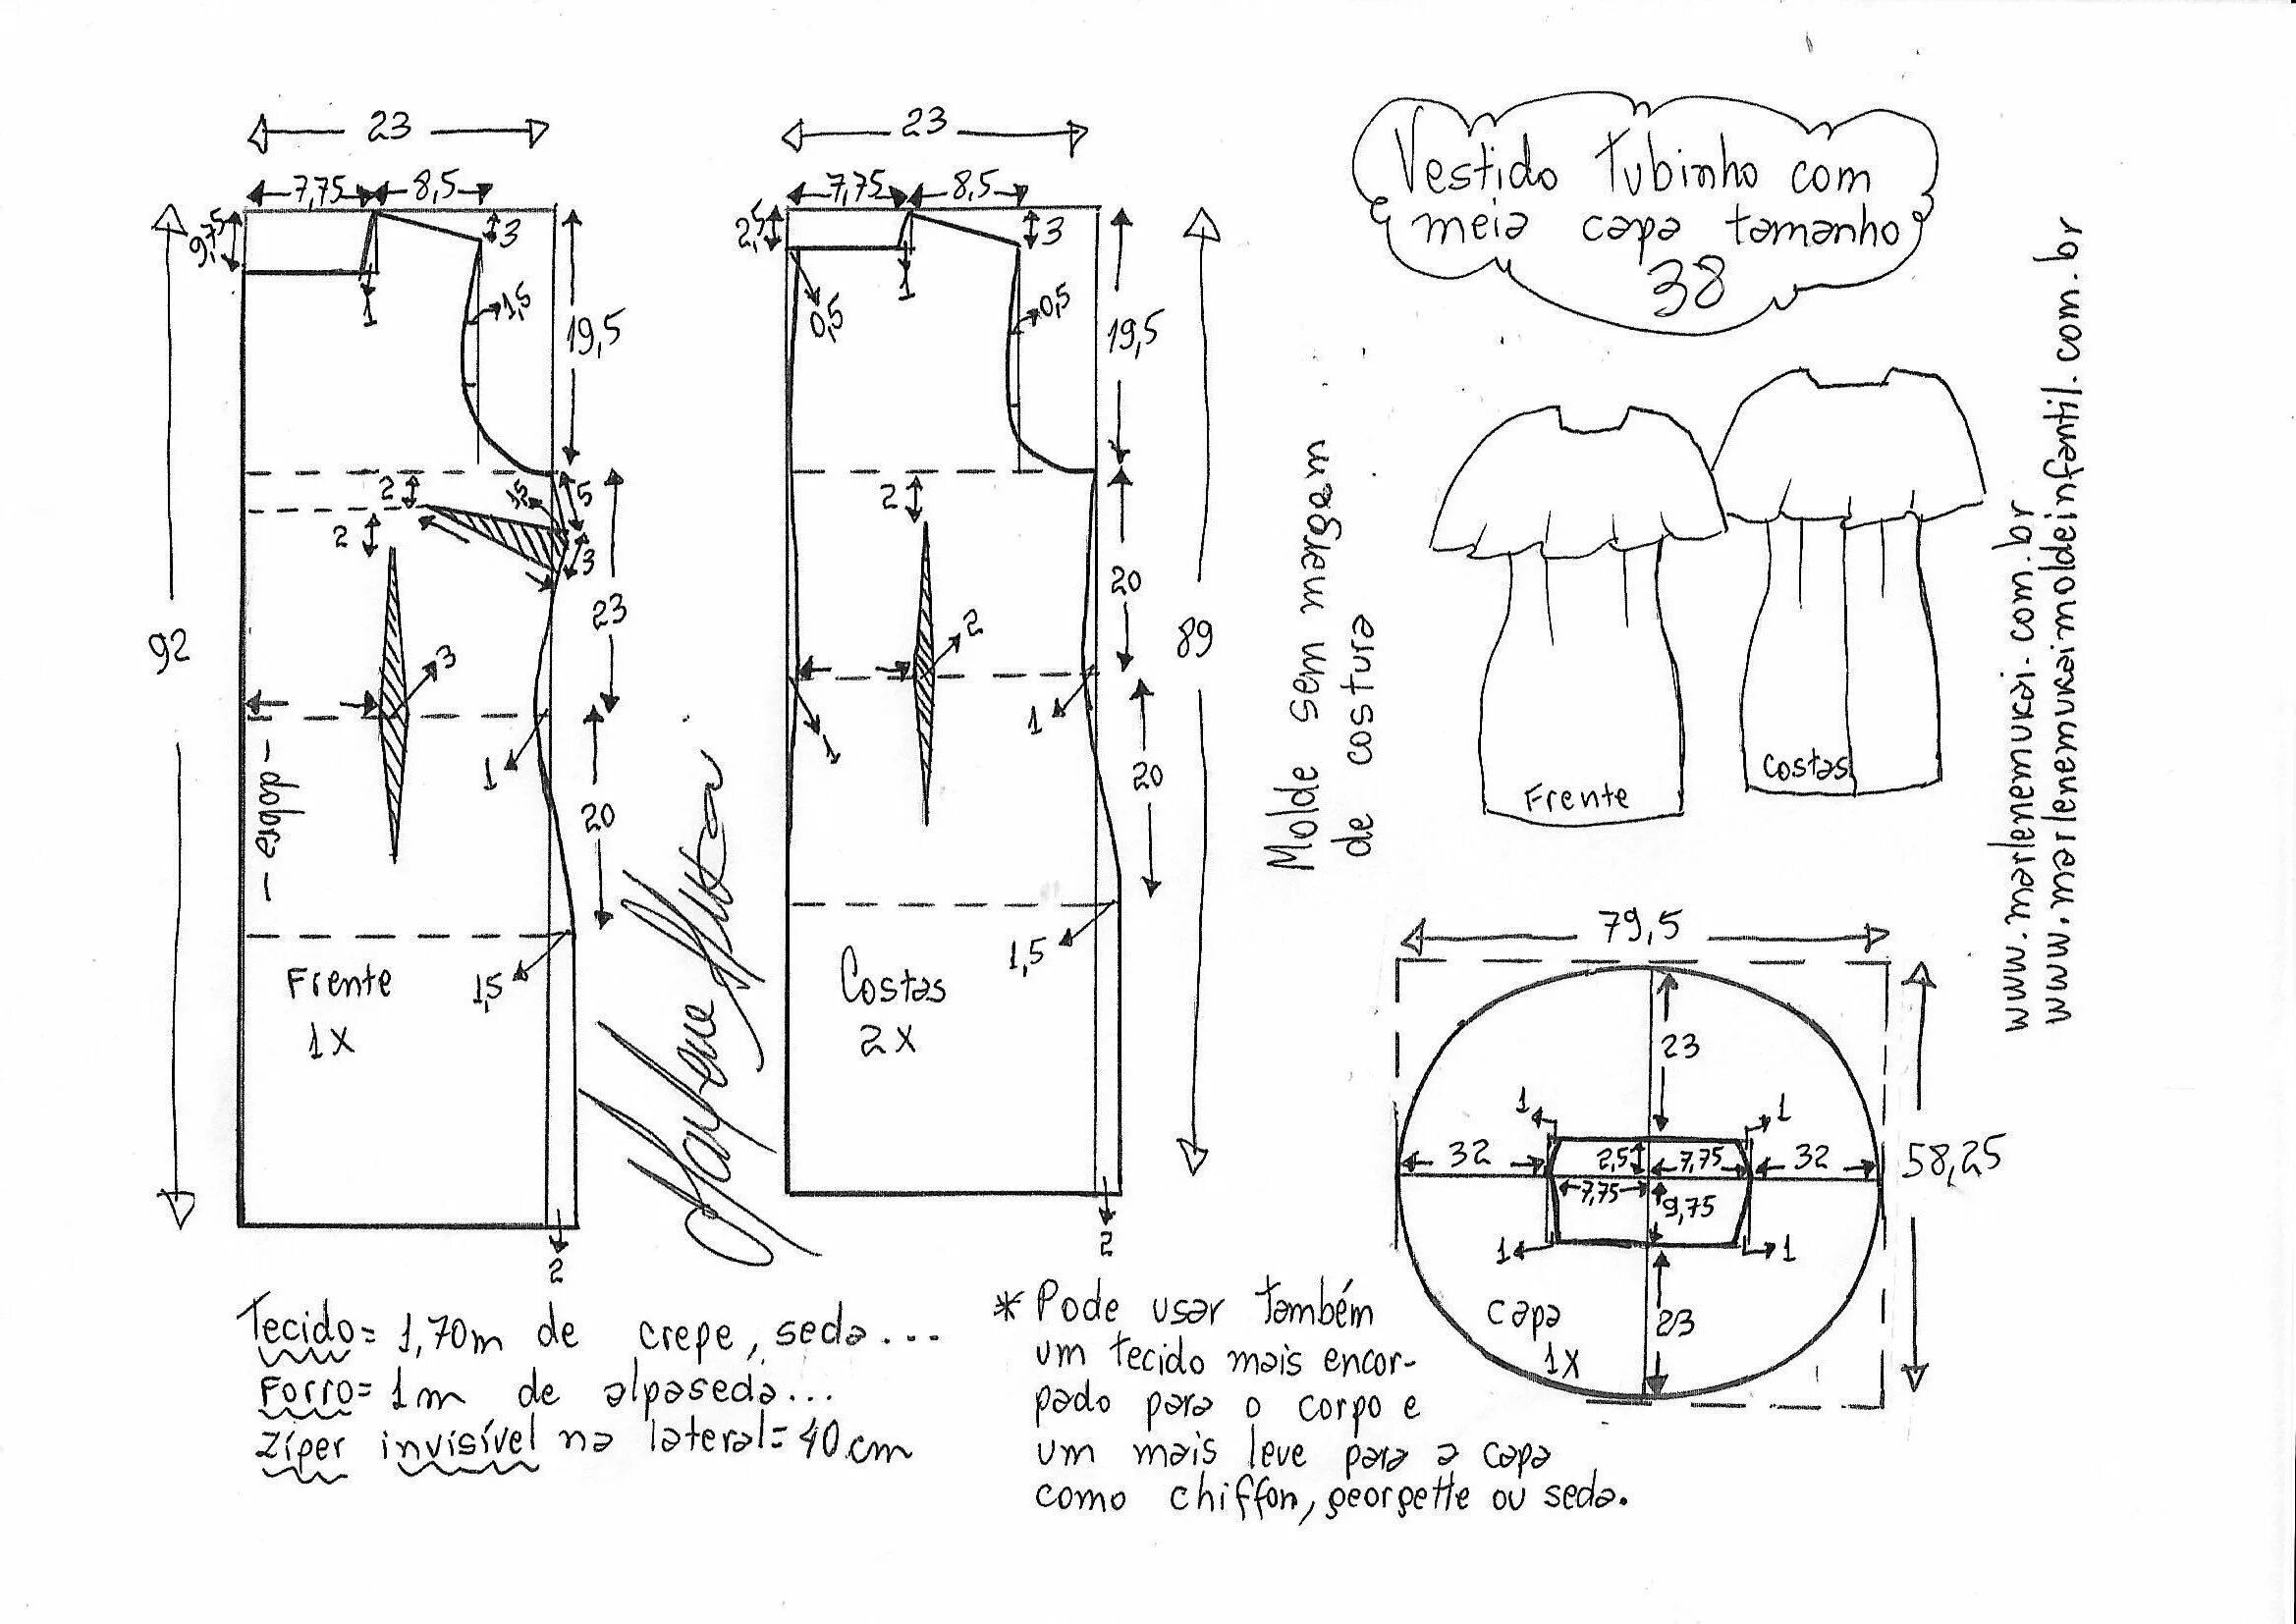 Vestido Tubinho com
meia capa tamanho
38
23
7,75
8,5
9,75
3
1
1,5
19,5
2
1,5
5
2
3
23
3
92
1
- dobra -
20
Frente
1X
1,5
2
23
7,75
8,5
2,5
3
1
0,5
0,5
19,5
2
20
2
89
1
1
20
Costas
2X
1,5
2
Molde sem margem
de costura
Frente
Costas
www.marlenemukai.com.br
www.marlenemukaimoldeinfantil.com.br
79,5
23
1
1
32
2,5
7,75
32
58,25
7,75
9,75
1
1
23
Capa
1X
Tecido= 1,70m de crepe, seda...
Forro= 1m de alpaseda...
Zíper invisível na lateral= 40cm
* Pode usar também
um tecido mais encor-
pado para o corpo e
um mais leve para a capa
como chiffon, georgette ou seda.